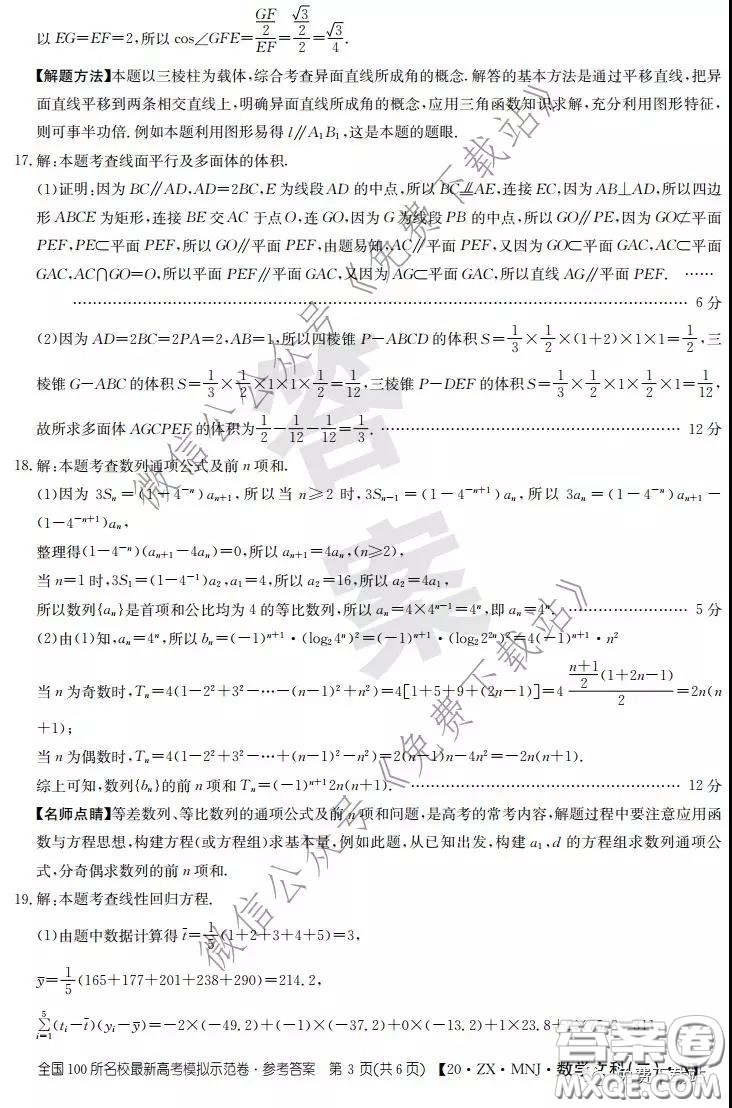 以 EG=EF=2,所以 cos∠GFE=(GF/2)/EF=(√3/2)/2=√3/4.
【解题方法】本题以三棱柱为载体,综合考查异面直线所成角的概念.解答的基本方法是通过平移直线,把异
面直线平移到两条相交直线上,明确异面直线所成角的概念,应用三角函数知识求解,充分利用图形特征,
则可事半功倍.例如本题利用图形易得 l∥A₁B₁,这是本题的题眼.
17. 解:本题考查线面平行及多面体的体积.
(1)证明:因为 BC∥AD,AD=2BC,E 为线段 AD 的中点,所以 BC⫽AE,连接 EC,因为 AB⊥AD,所以四边
形 ABCE 为矩形,连接 BE 交 AC 于点 O,连 GO,因为 G 为线段 PB 的中点,所以 GO∥PE,因为 GO⊄平面
PEF,PE⊂平面 PEF,所以 GO∥平面 PEF,由题易知,AC∥平面 PEF,又因为 GO⊂平面 GAC,AC⊂平面
GAC,AC∩GO=O,所以平面 PEF∥平面 GAC,又因为 AG⊂平面 GAC,所以直线 AG∥平面 PEF. ……
…………………………………………………………………… 6 分
(2)因为 AD=2BC=2PA=2,AB=1,所以四棱锥 P-ABCD 的体积 S=1/3×1/2×(1+2)×1×1=1/2,三
棱锥 G-ABC 的体积 S=1/3×1/2×1×1×1/2=1/12,三棱锥 P-DEF 的体积 S=1/3×1/2×1×1/2×1=1/12,
故所求多面体 AGCPEF 的体积为1/2-1/12-1/12=1/3. ………………………………… 12 分
18. 解:本题考查数列通项公式及前 n 项和.
(1)因为 3Sₙ=(1-4⁻ⁿ)aₙ₊₁,所以当 n≥2 时,3Sₙ₋₁=(1-4⁻ⁿ⁺¹)aₙ,所以 3aₙ=(1-4⁻ⁿ)aₙ₊₁-
(1-4⁻ⁿ⁺¹)aₙ,
整理得(1-4⁻ⁿ)(aₙ₊₁-4aₙ)=0,所以 aₙ₊₁=4aₙ,(n≥2),
当 n=1 时,3S₁=(1-4⁻¹)a₂,a₁=4,所以 a₂=16,所以 a₂=4a₁,
所以数列{aₙ}是首项和公比均为 4 的等比数列,所以 aₙ=4×4ⁿ⁻¹=4ⁿ,即 aₙ=4ⁿ. …………… 5 分
(2)由(1)知,aₙ=4ⁿ,所以 bₙ=(-1)ⁿ⁺¹·(log₂4ⁿ)²=(-1)ⁿ⁺¹·(log₂2²ⁿ)²=4(-1)ⁿ⁺¹·n²
当 n 为奇数时,Tₙ=4(1-2²+3²-…-(n-1)²+n²)=4[1+5+9+(2n-1)]=4 ((n+1)/2(1+2n-1))/2=2n(n
+1);
当 n 为偶数时,Tₙ=4(1-2²+3²-…+(n-1)²-n²)=2(n-1)n-4n²=-2n(n+1).
综上可知,数列{bₙ}的前 n 项和 Tₙ=(-1)ⁿ⁺¹2n(n+1). ……………………………… 12 分
【名师点睛】等差数列、等比数列的通项公式及前 n 项和问题,是高考的常考内容,解题过程中要注意应用函
数与方程思想,构建方程(或方程组)求基本量,例如此题,从已知出发,构建 a₁,d 的方程组求数列通项公
式,分奇偶求数列的前 n 项和.
19. 解:本题考查线性回归方程.
(1)由题中数据计算得 t̄=1/5(1+2+3+4+5)=3,
ȳ=1/5(165+177+201+238+290)=214.2,
∑(i=1→5)(tᵢ-t̄)(yᵢ-ȳ)=-2×(-49.2)+(-1)×(-37.2)+0×(-13.2)+1×23.8+
全国 100 所名校最新高考模拟示范卷·参考答案 第 3 页(共 6 页) 【20·ZX·MNJ·数学文科
答案
微信公众号《免费下载站》
微信公众号《免费下载站》
答案圈
MXQE.COM